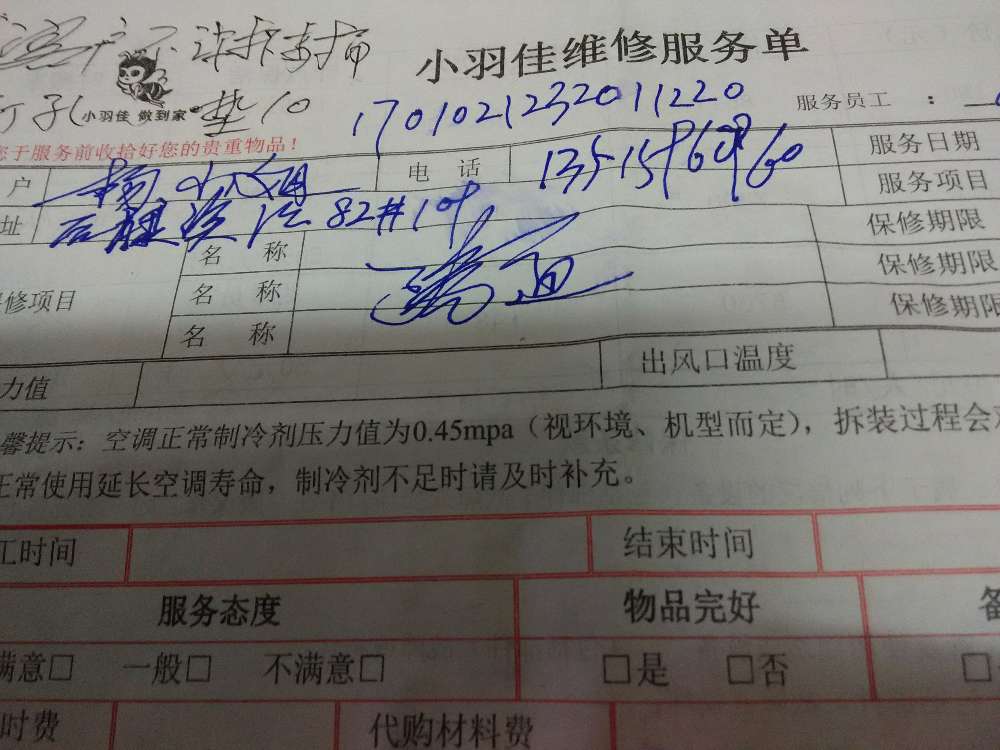 客户不让
小羽佳维修服务单
小羽佳 做到家
垫10
1701021232011220
服务员工 ：
您于服务前收拾好您的贵重物品！
户 杨小姐 电 话 服务日期
服务项目
址 82# 保修期限
名 称
名 称 保修期限
修项目
名 称 保修期限
力值 出风口温度
馨提示：空调正常制冷剂压力值为0.45mpa（视环境、机型而定），拆装过程会
正常使用延长空调寿命，制冷剂不足时请及时补充。
工时间 结束时间
服务态度 物品完好 备
满意□ 一般□ 不满意□ □是 □否 □
时费 代购材料费